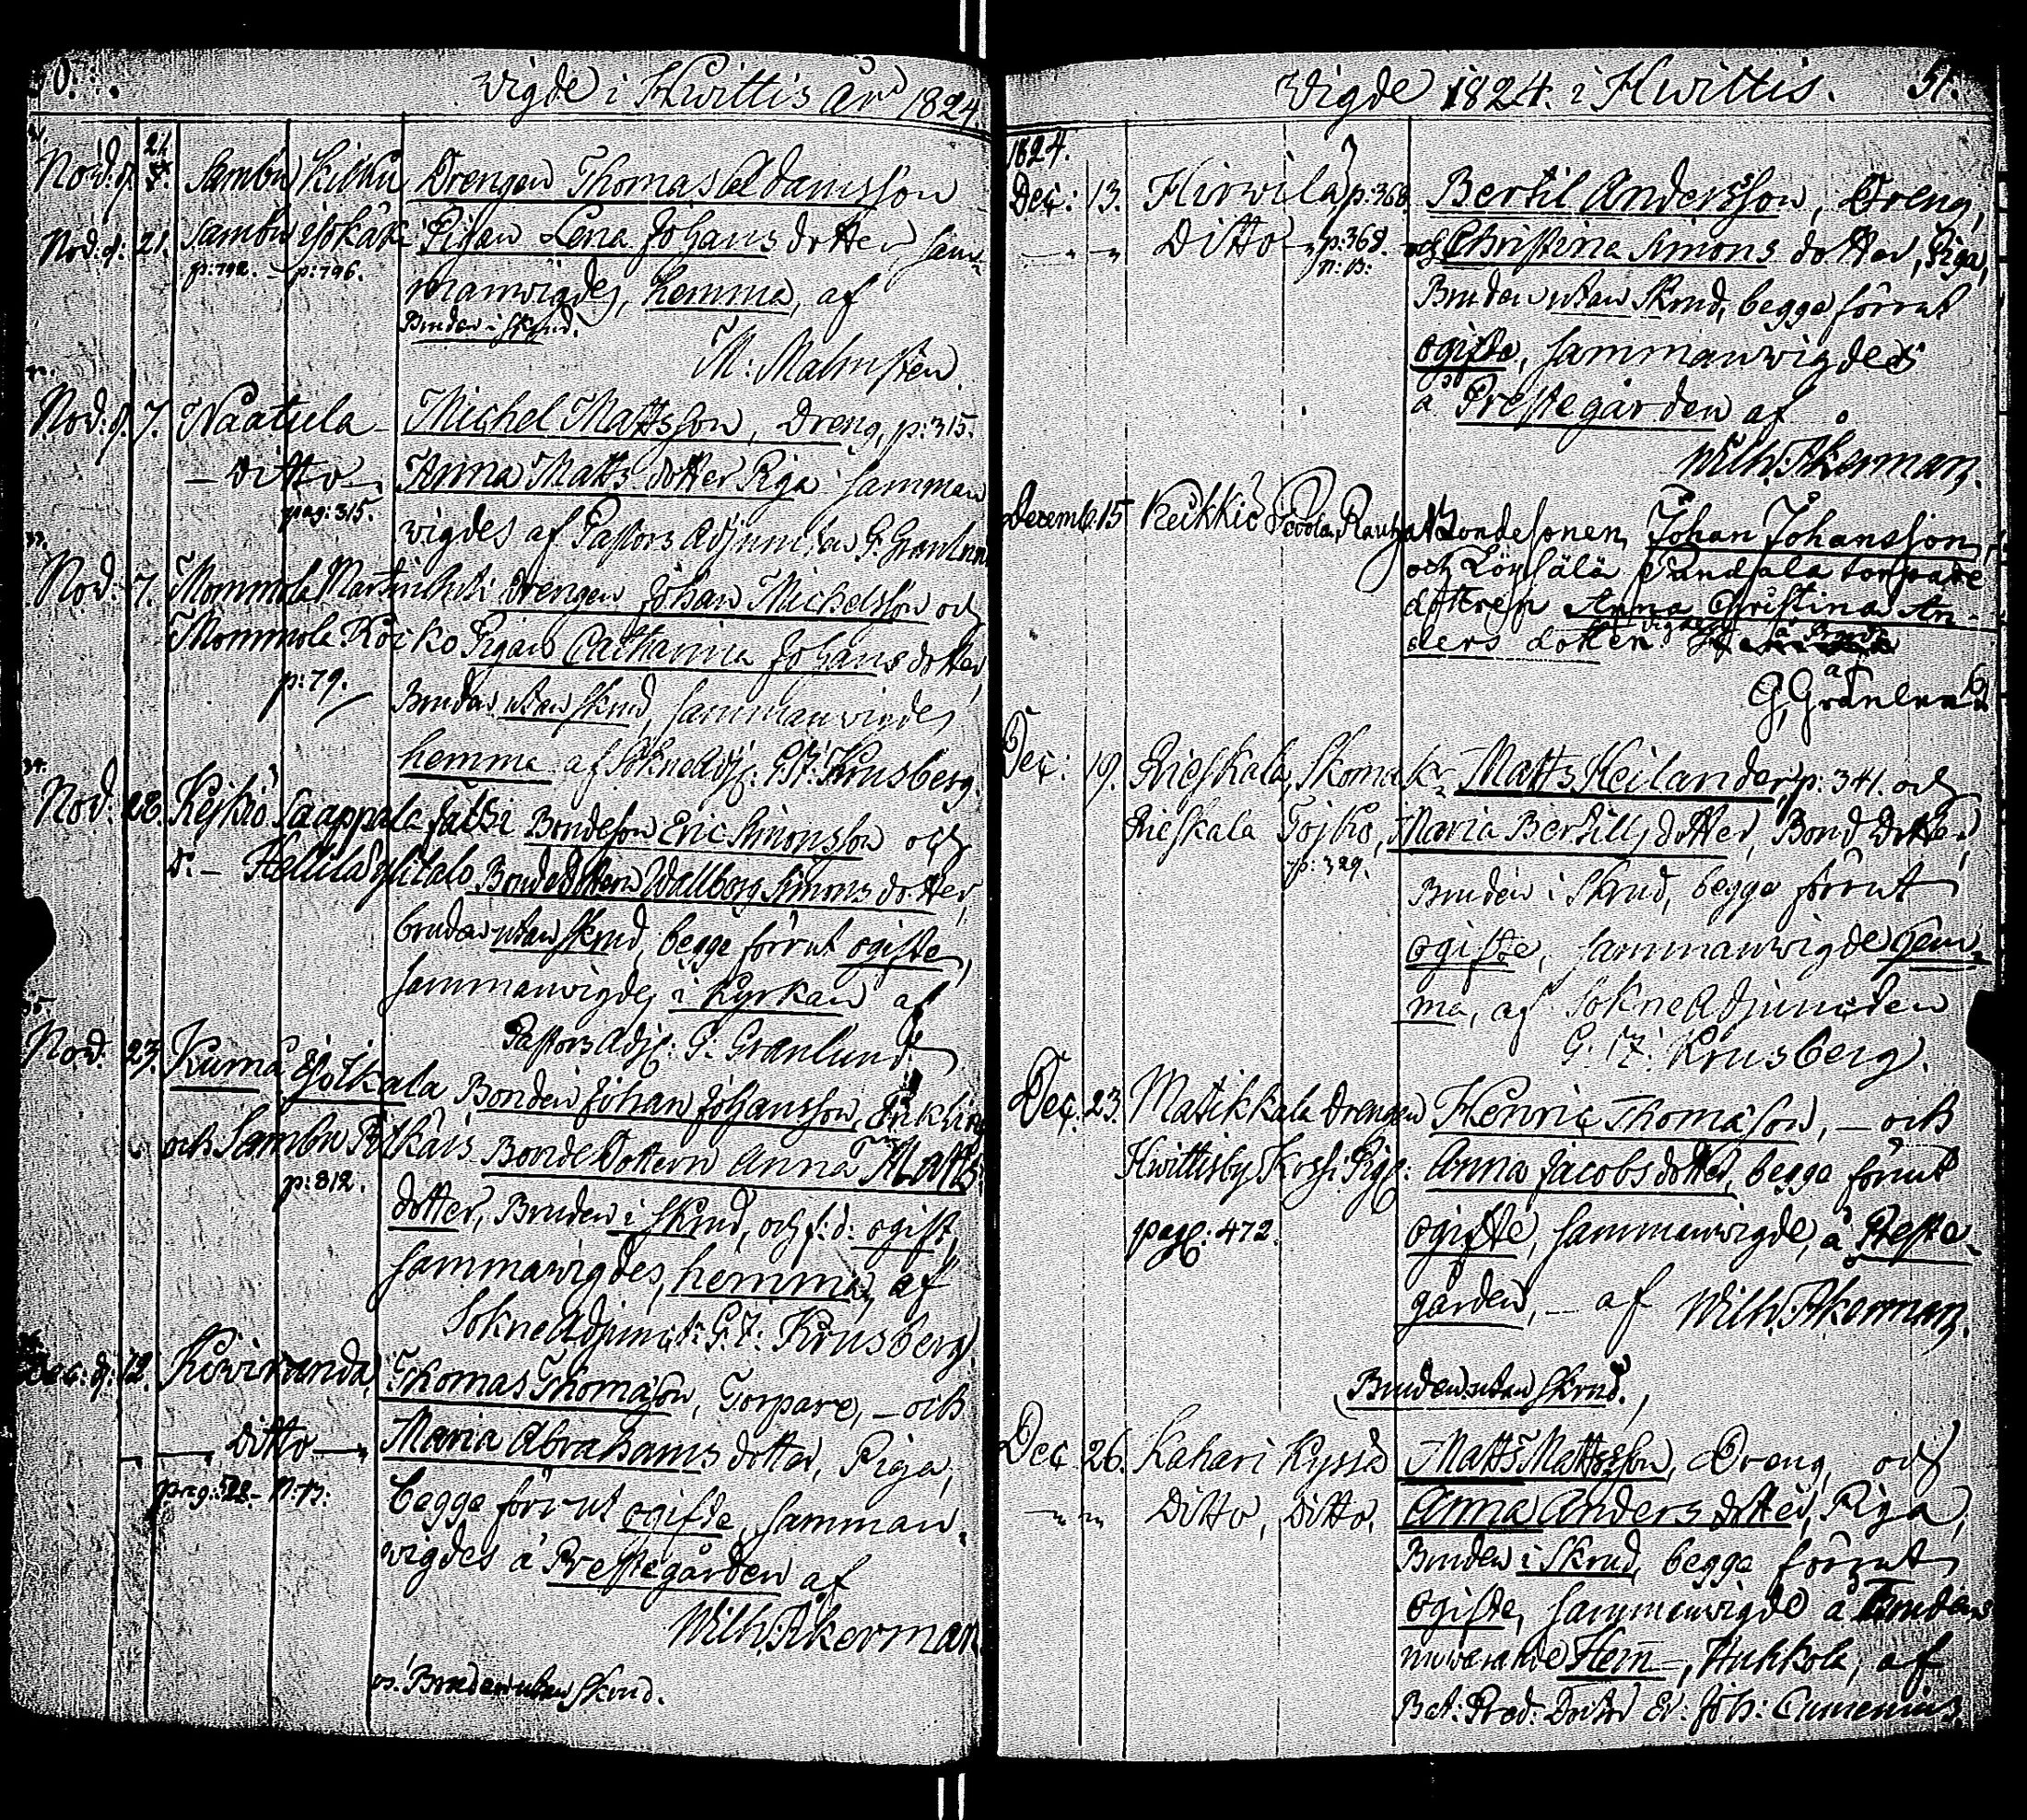 Vigde i Hwittis År 1824.
Nov: d. 21. Sambu Kickú Drengen Thomas Adamsson
Nov: d. 21. Sambu p: 792. p: 796. Pigan Lena Johans dotter, sam-
manvigdes, hemma, af
Bruden i skrud.
M: Malmsten
Nov: d. 7. Naatula Michel Mattsson, Dreng, p: 315.
Ditto Anna Matts dotter Piga samman
pag: 315. vigdes af Pastors Adjuncten G: Granlund
Nov: 7. Mommola Drengen Johan Michelsson och
Mommola Koicko Pigan Catharina Johans dotter,
p: 79. Bruden utan skrud, sammanvigdes
hemma af SokneAdj: G: F: Krusberg.
Nov: 28. Kejkiö Saappala Bondeson Eric Simonsson och
D:- Hellilä Ylitalo Bondedottern Wallborg Simons dotter,
bruden utan skrud, begge förrut ogifte,
sammanvigdes i Kyrkan af
Pastors Adj: G: Granlund
Nov: 23. Kumå Bonden Johan Johansson, Enkling
och Sambu Bondedottern Anna Matts
p: 812.
dotter, Bruden i skrud, och f: d: ogift,
sammanvigdes, hemma, af
SokneAdjunct: G: F: Krusberg
Dec: d: 12. Koivicanda, Thomas Thomasson, Torpare, – och
Ditto Maria Abrahams dotter, Piga,
begge förrut ogifte, samman-
vigdes å Prestegården af
Wilh: Åkerman
Bruden utan skrud.
Vigde 1824. i Hwittis. 51.
1824.
Dec: 13. Hirvilä, p: 368. Bertil Andersson, Dreng,
Ditto p: 368. och Christina Simons dotter, Piga,
Bruden utan skrud, begge förrut
ogifte, sammanvigdes
å Prestegården af
Wilh: Åkerman.
Decemb: 15 Keikkiö Bondesonen Johan Johansson,
och torpare
dottren Anna Christina An-
ders dotter
af
G, Granlund
Dec: 19. Rieskala, Skomak: Matts Keilander, p: 341. och
Rieskala Tojko, Maria Bertills dotter, Bond Dotter,
p: 329.
Bruden i skrud, begge förrut
ogifte, sammanvigde hem-
ma, af SokneAdjuncten
G: F: Krusberg.
Dec: 23. Matikkala Drengen Henric Thomasson, – och
Hwittisby Pig: Anna Jacobs dotter, begge förrut
pag: 472. ogifte, sammanvigde, å Preste-
gården, – af Wilh: Åkerman.
Bruden utan skrud.
Dec 26. Kahari Kyssä Matts Mattsson, Dreng, och
Ditto, Ditto, Anna Anders dotter, Piga,
Bruden i skrud, begge förrut
ogifte, sammanvigde å Brudens
nuvarande Hem –, Hukkola, af
Joh: Cumenius.